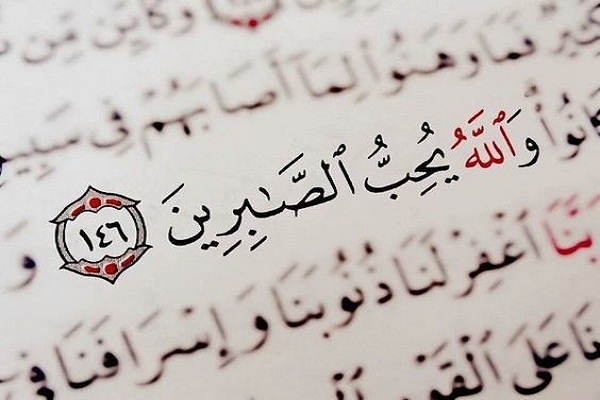 وَكَأَيِّن مِّن
كَثِيرٌ فَمَا وَهَنُوا۟ لِمَآ أَصَابَهُمْ فِى سَبِيلِ
كَانُوا۟ وَٱللَّهُ يُحِبُّ ٱلصَّـٰبِرِينَ ١٤٦ وَ
رَبَّنَا ٱغْفِرْ لَنَا ذُنُوبَنَا وَإِسْرَافَنَا فِىٓ
عَلَى ٱلْقَوْمِ